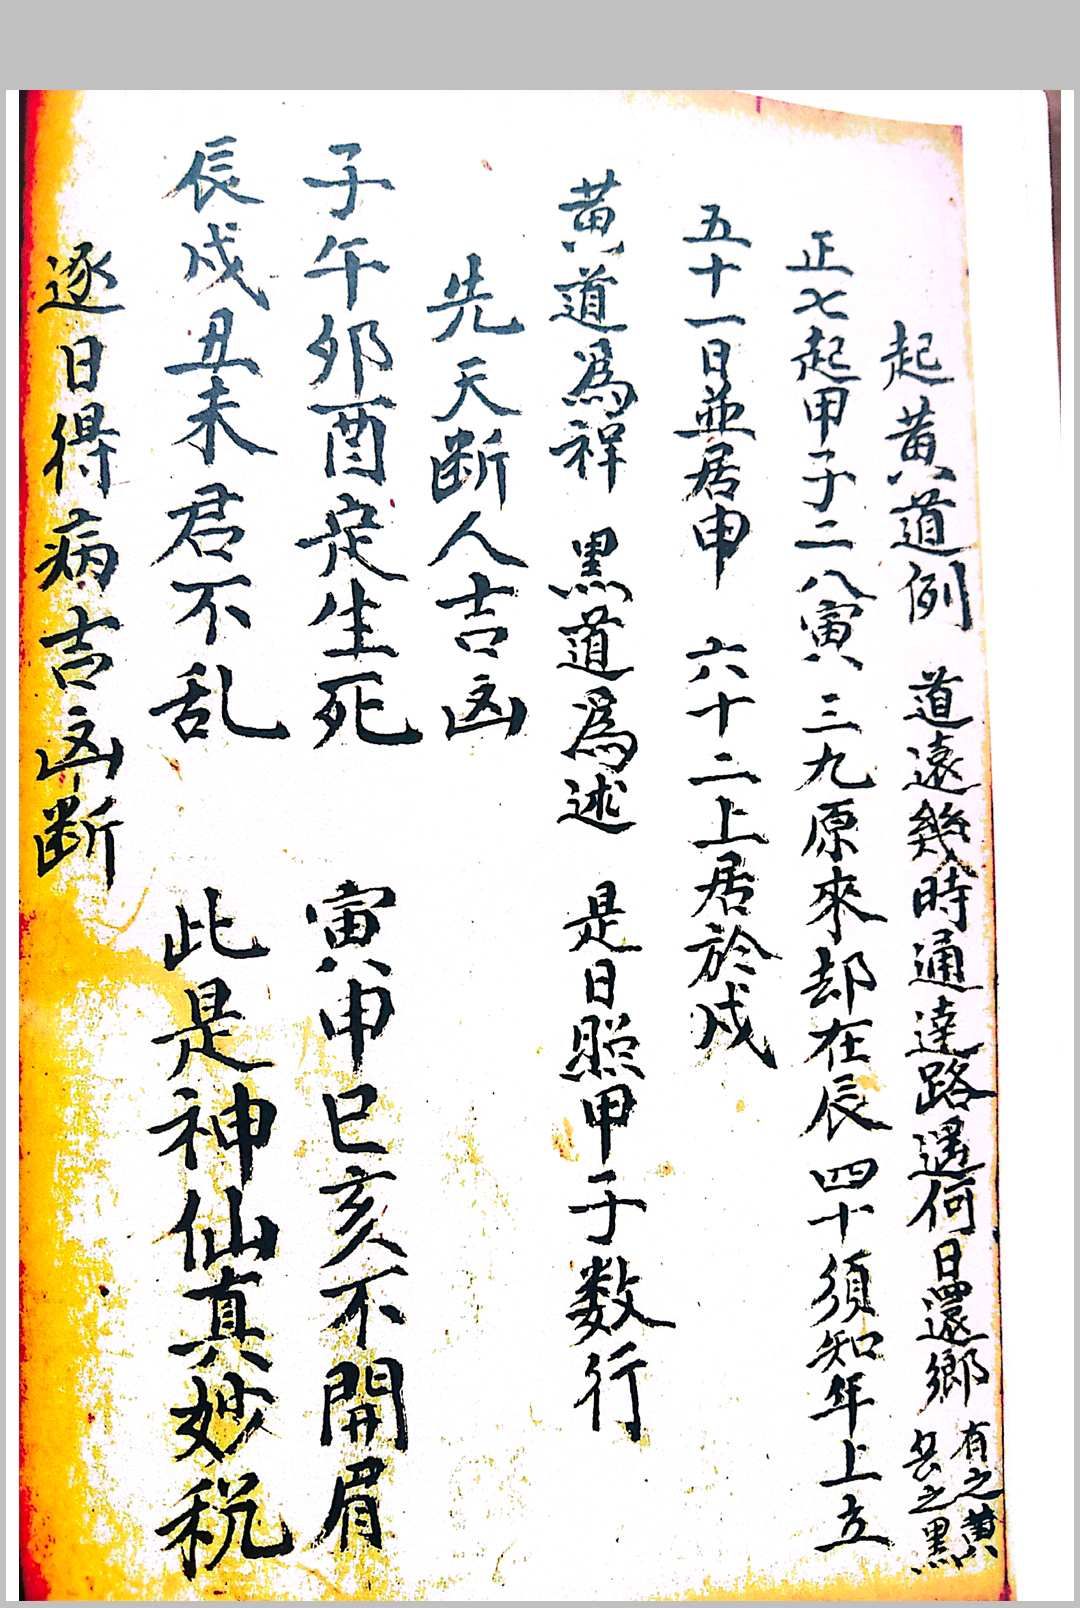 起黄道例　道遠幾時通達路遥何日還鄉　有之黄　兵之黑
正七起甲子二八寅　三九原來却在辰　四十須知年上立
五十一日並居申　六十二上居於戌
黄道爲祥　黑道爲述　是日照甲子数行
先天断人吉凶
子午卯酉定生死　寅申巳亥不開眉
辰戌丑未君不乱　此是神仙真妙税
逐日得病吉凶断